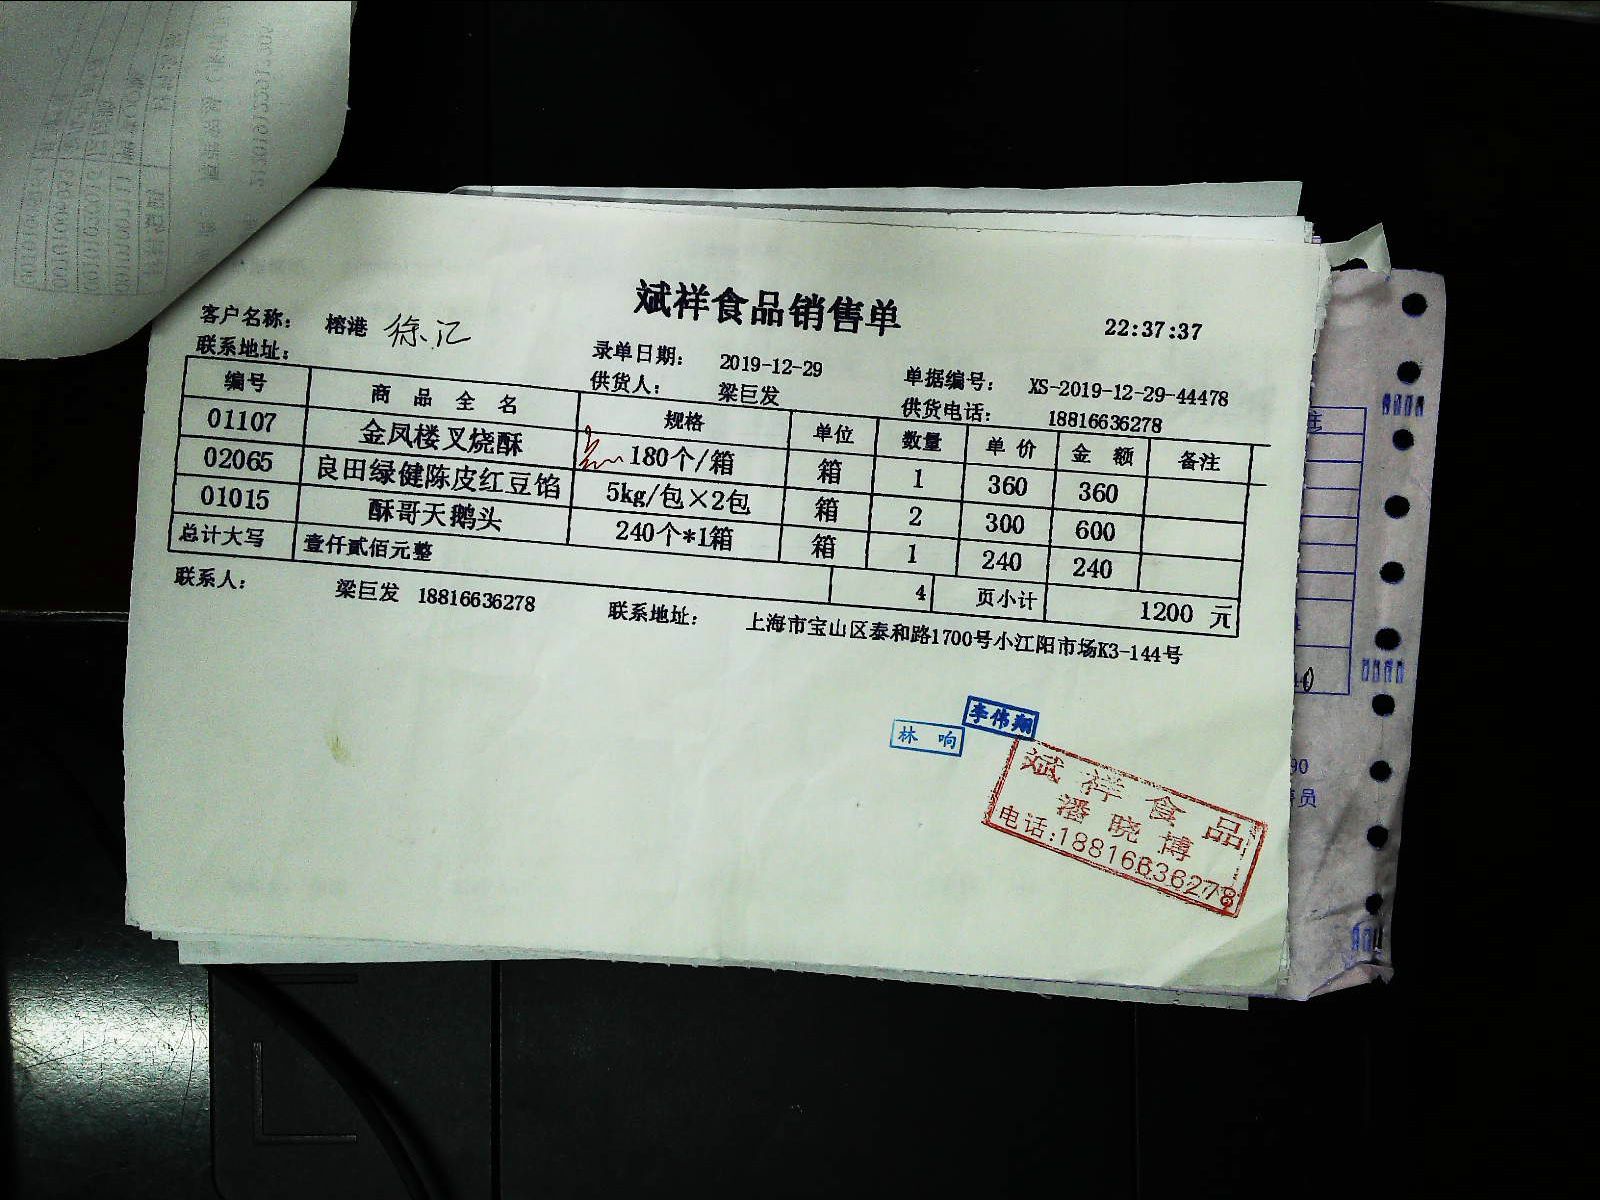 斌祥食品销售单
22:37:37
客户名称： 榕港 徐汇
联系地址： 录单日期： 2019-12-29 单据编号： XS-2019-12-29-44478
供货人： 梁巨发 供货电话： 18816636278
编号 商品全名 规格 单位 数量 单价 金额 备注
01107 金凤楼叉烧酥 180个/箱 箱 1 360 360
02065 良田绿健陈皮红豆馅 5kg/包×2包 箱 2 300 600
01015 酥哥天鹅头 240个*1箱 箱 1 240 240
总计大写 壹仟贰佰元整 4 页小计 1200 元
联系人： 梁巨发 18816636278 联系地址： 上海市宝山区泰和路1700号小江阳市场K3-144号
李伟翔
林响
斌祥食品
潘晓博
电话:18816636278